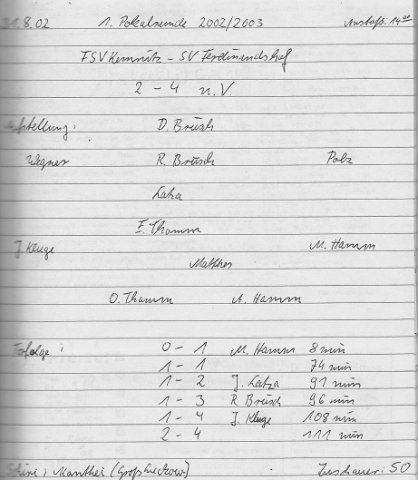 31.8.02 1. Pokalrunde 2002/2003 Anstoß: 14⁰⁰
FSV Kemnitz - SV Ferdinandshof
2 - 4 n.V
Aufstellung: D. Brüsch
Wegner R. Brüsch Polz
Latza
E. Thamm
J. Kluge M. Hamm
Matthes
O. Thamm A. Hamm
Torfolge: 0 - 1 M. Hamm 8 min
1 - 1 74 min
1 - 2 J. Latza 91 min
1 - 3 R Brüsch 96 min
1 - 4 J. Kluge 108 min
2 - 4 111 min
Schiri: Manthei (Groß Luckow) Zuschauer: 50